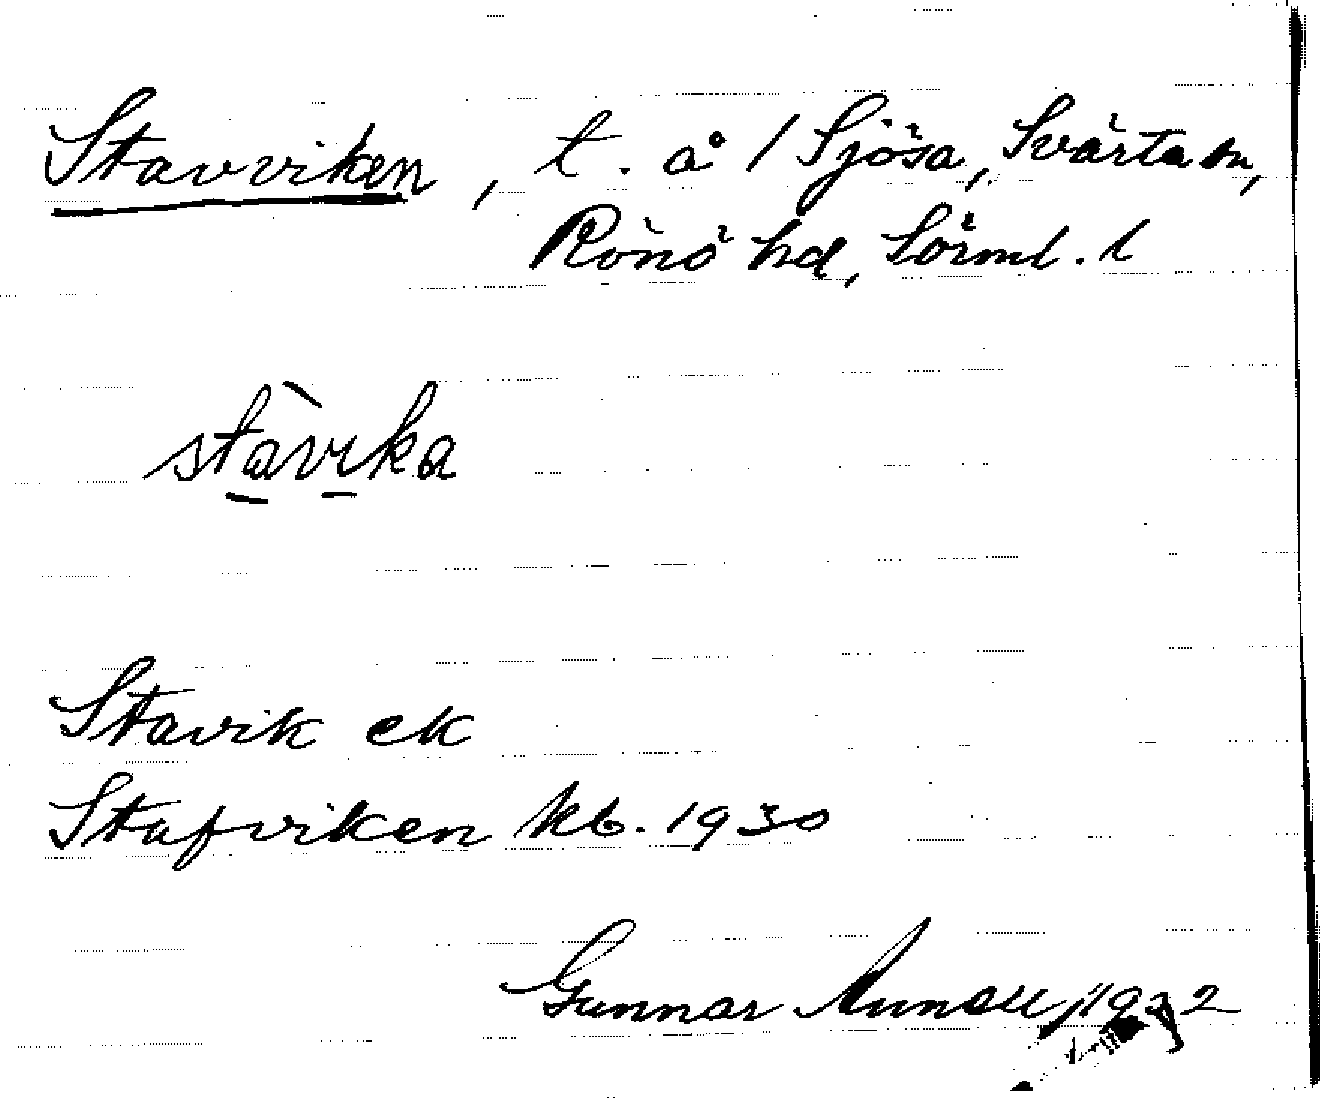 Stavviken, t. å / Sjösa, Svärta sn,
Rönö hd, Sörml. l
stàvika
Stavik ek
Stafviken kb. 1930
Gunnar 1932